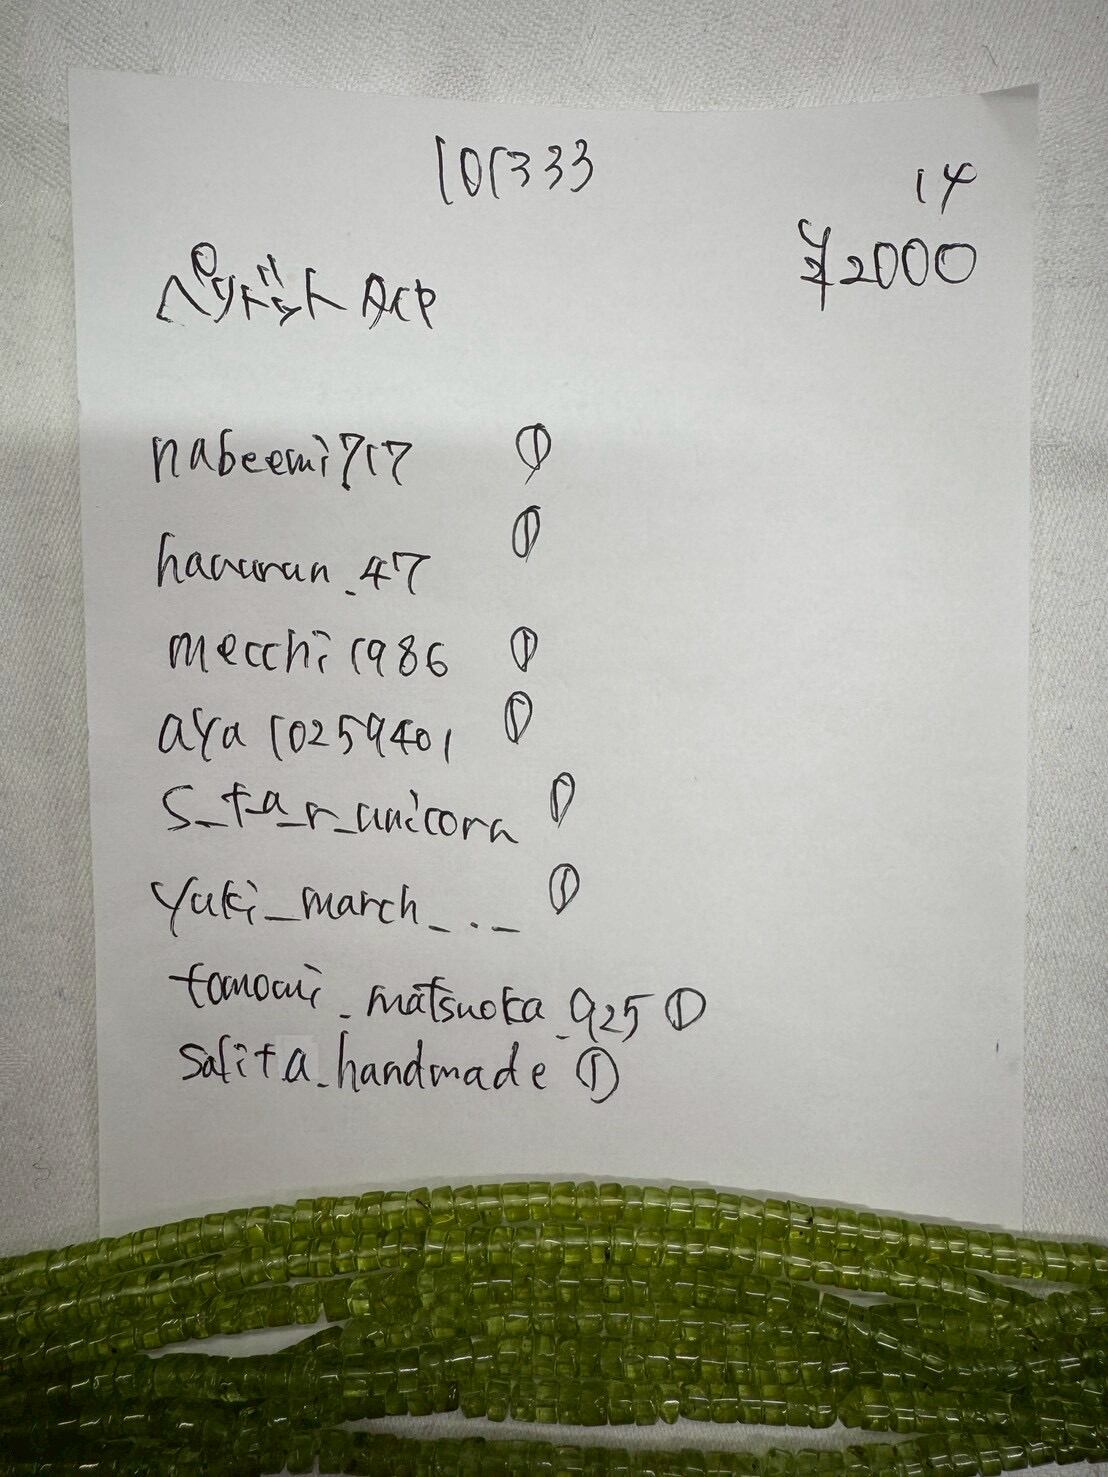 101333
14
¥2000
ペリドット ACP
nabeemi717 ①
①
hanaran_47
mecchi1986 ①
aya10259401 ①
s_t_a_r_unicorn ①
yuki_march_._ ①
tomomi_matsuoka_925 ①
safita_handmade ①